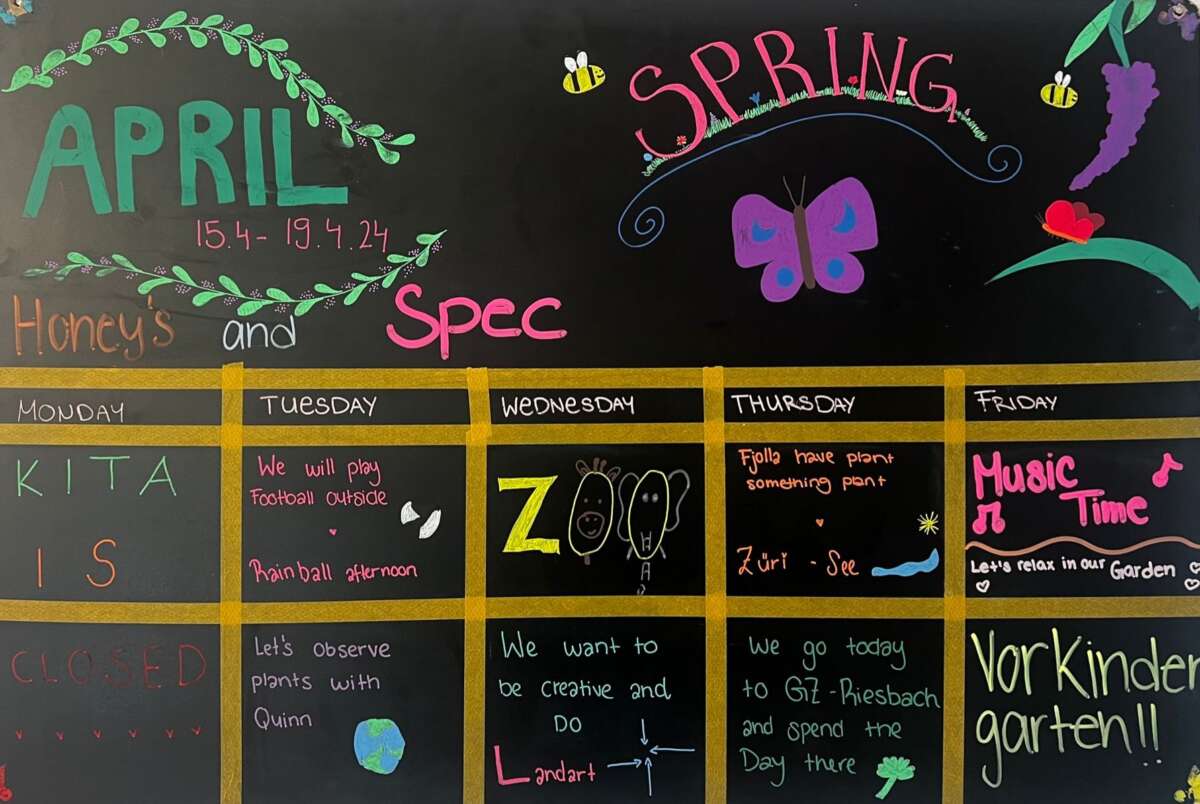 APRIL
15.4 - 19.4.24
SPRING
Honey's and Spec
MONDAY
TUESDAY
WEDNESDAY
THURSDAY
FRIDAY
KITA
IS
We will play
Football outside
Rainball afternoon
ZOO
Fjolla have plant
something plant
Züri - See
Music
Time
Let's relax in our Garden
CLOSED
Let's observe
plants with
Quinn
We want to
be creative and
DO
Landart
We go today
to GZ-Riesbach
and spend the
Day there
Vorkinder
garten!!